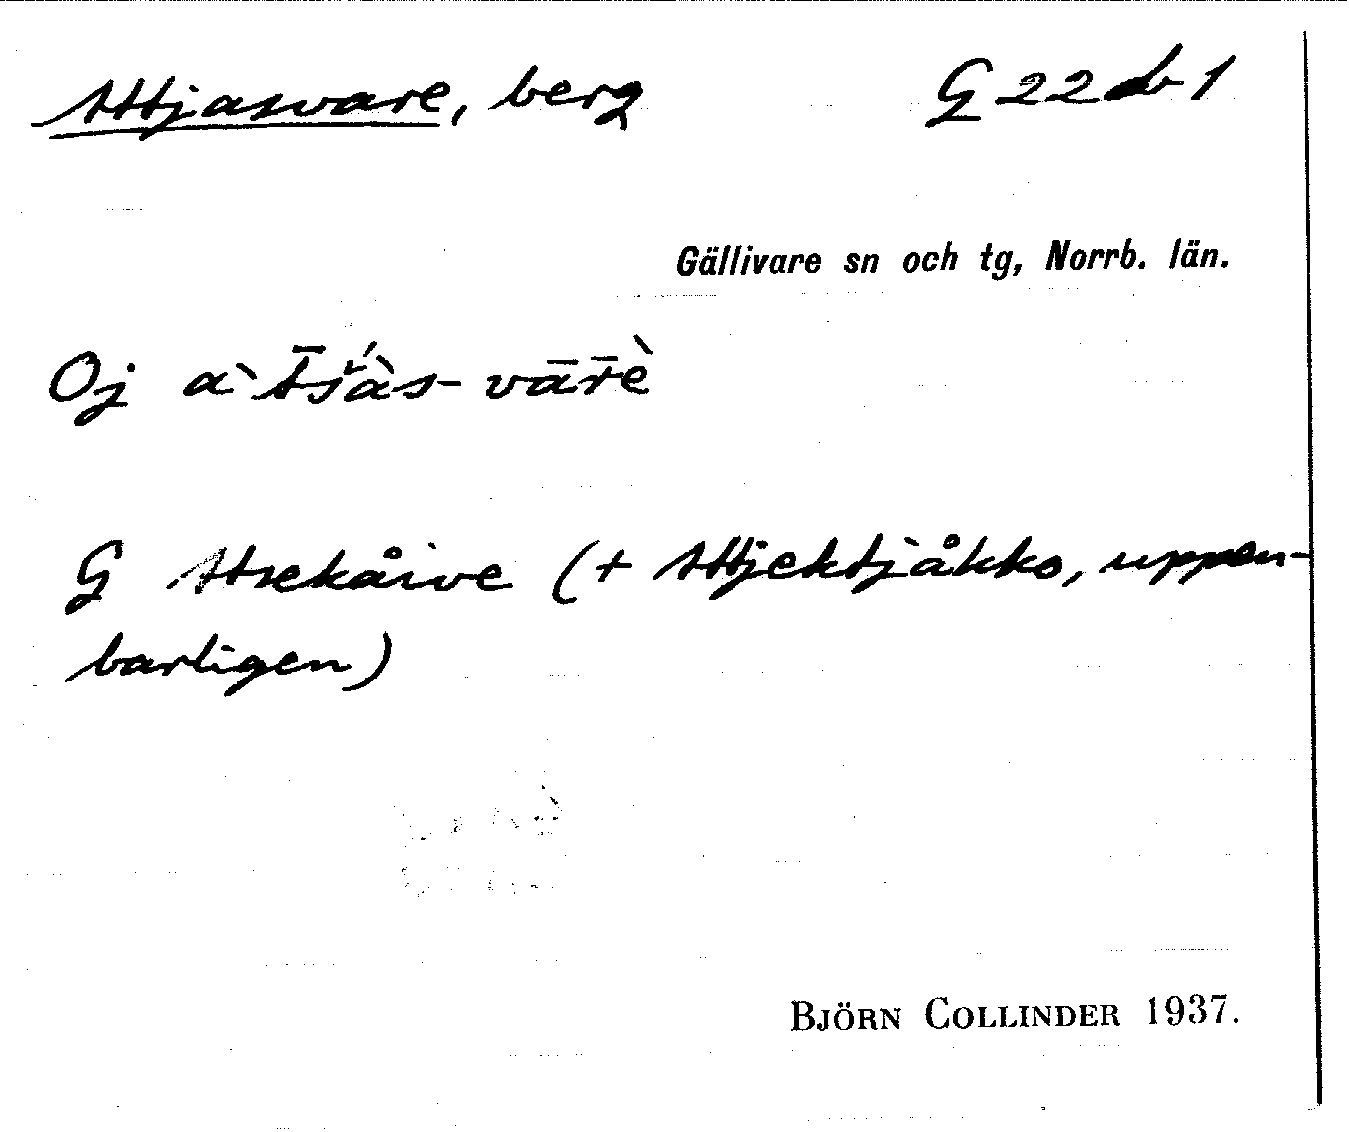 Attjasvare, berg G 22 b 1
Gällivare sn och tg, Norrb. län.
Oj a`t̄š́às-vār̄è
G Atsekåive (+ Attjektjåkko, uppen-
barligen)
BJÖRN COLLINDER 1937.